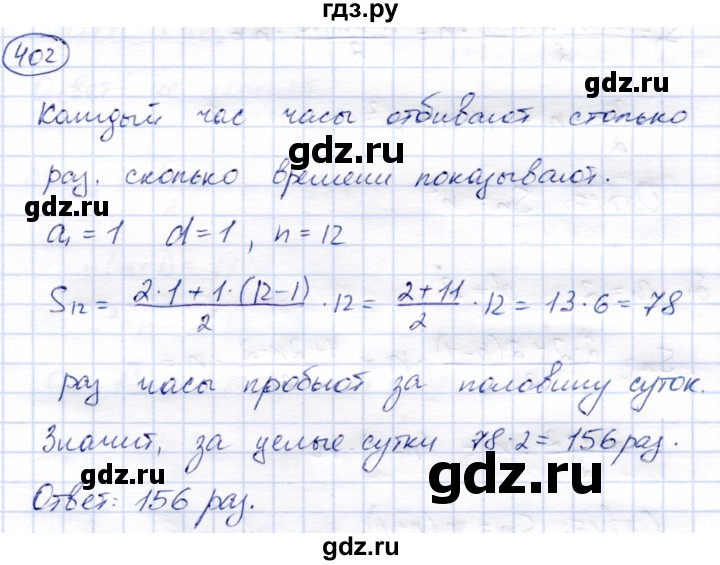 гдз.ру
402
gdz.ru
Каждый час часы отбивают столько
gdz.ru
раз. сколько времени показывают.
gdz.ru
gdz.ru
a₁ = 1 d = 1, n = 12
S₁₂ = (2·1 + 1·(12-1))/2 · 12 = (2+11)/2 · 12 = 13·6 = 78
gdz.ru
gdz.ru
раз часы пробьют за половину суток.
gdz.ru
Значит, за целые сутки 78·2 = 156 раз.
gdz.ru
Ответ: 156 раз.
gdz.ru
gdz.ru